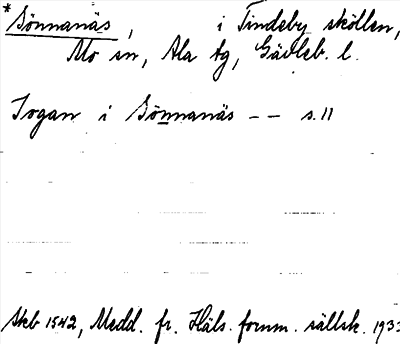 *Sönnanäs, i Tindeby sköllen,
Mo sn, Ala tg, Gävleb. l.
Sogan i Sönnanäs -- s. 11
Skb 1542, Medd. fr. Häls. fornm. sällsk. 1933